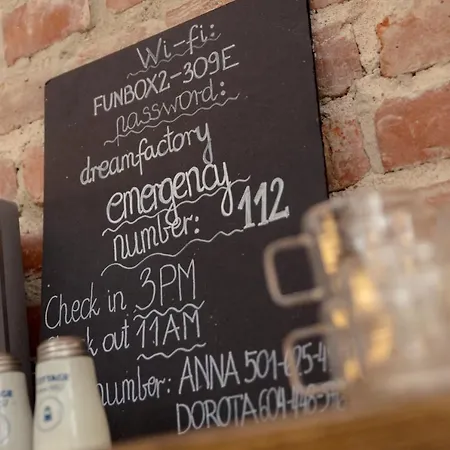 Wi-fi:
FUNBOX2-309E
password:
dreamfactory
emergency
number: 112
Check in 3PM
out 11AM
number: ANNA 501-625-4
DOROTA 604-448-5
COTTAGE